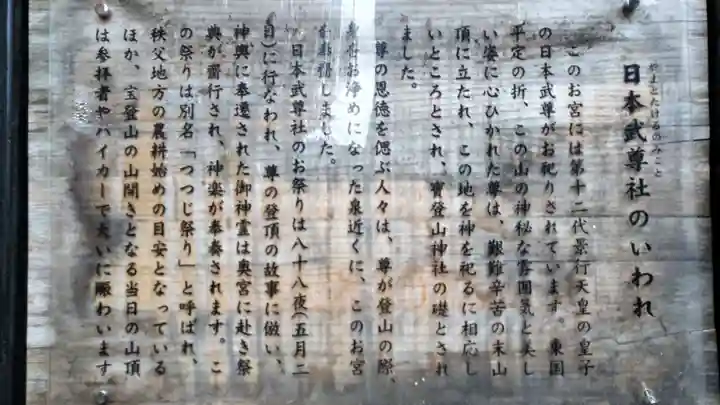 やまとたけるのみこと
日本武尊社のいわれ
このお宮には第十二代景行天皇の皇子
の日本武尊がお祀りされています。東国
平定の折、この山の神秘な雰囲気と美し
い姿に心ひかれた尊は、艱難辛苦の末山
頂に立たれ、この地を神を祀るに相応し
いところとされ、寶登山神社の礎とされ
ました。
尊の恩徳を偲ぶ人々は、尊が登山の際、
身をお浄めになった泉近くに、このお宮
しました。
日本武尊社のお祭りは八十八夜(五月二
日)に行なわれ、尊の登頂の故事に倣い、
神輿に奉遷された御神霊は奥宮に赴き祭
典が斎行され、神楽が奉奏されます。こ
の祭りは別名「つつじ祭り」と呼ばれ、
秩父地方の農耕始めの目安となっている
ほか、宝登山の山開きとなる当日の山頂
は参拝者やハイカーで大いに賑わいます